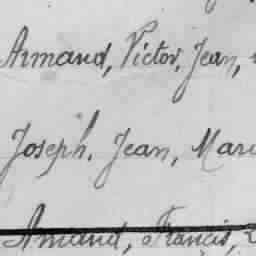 Armand, Victor, Jean,
Joseph. Jean, Mari
Amand, Francis,